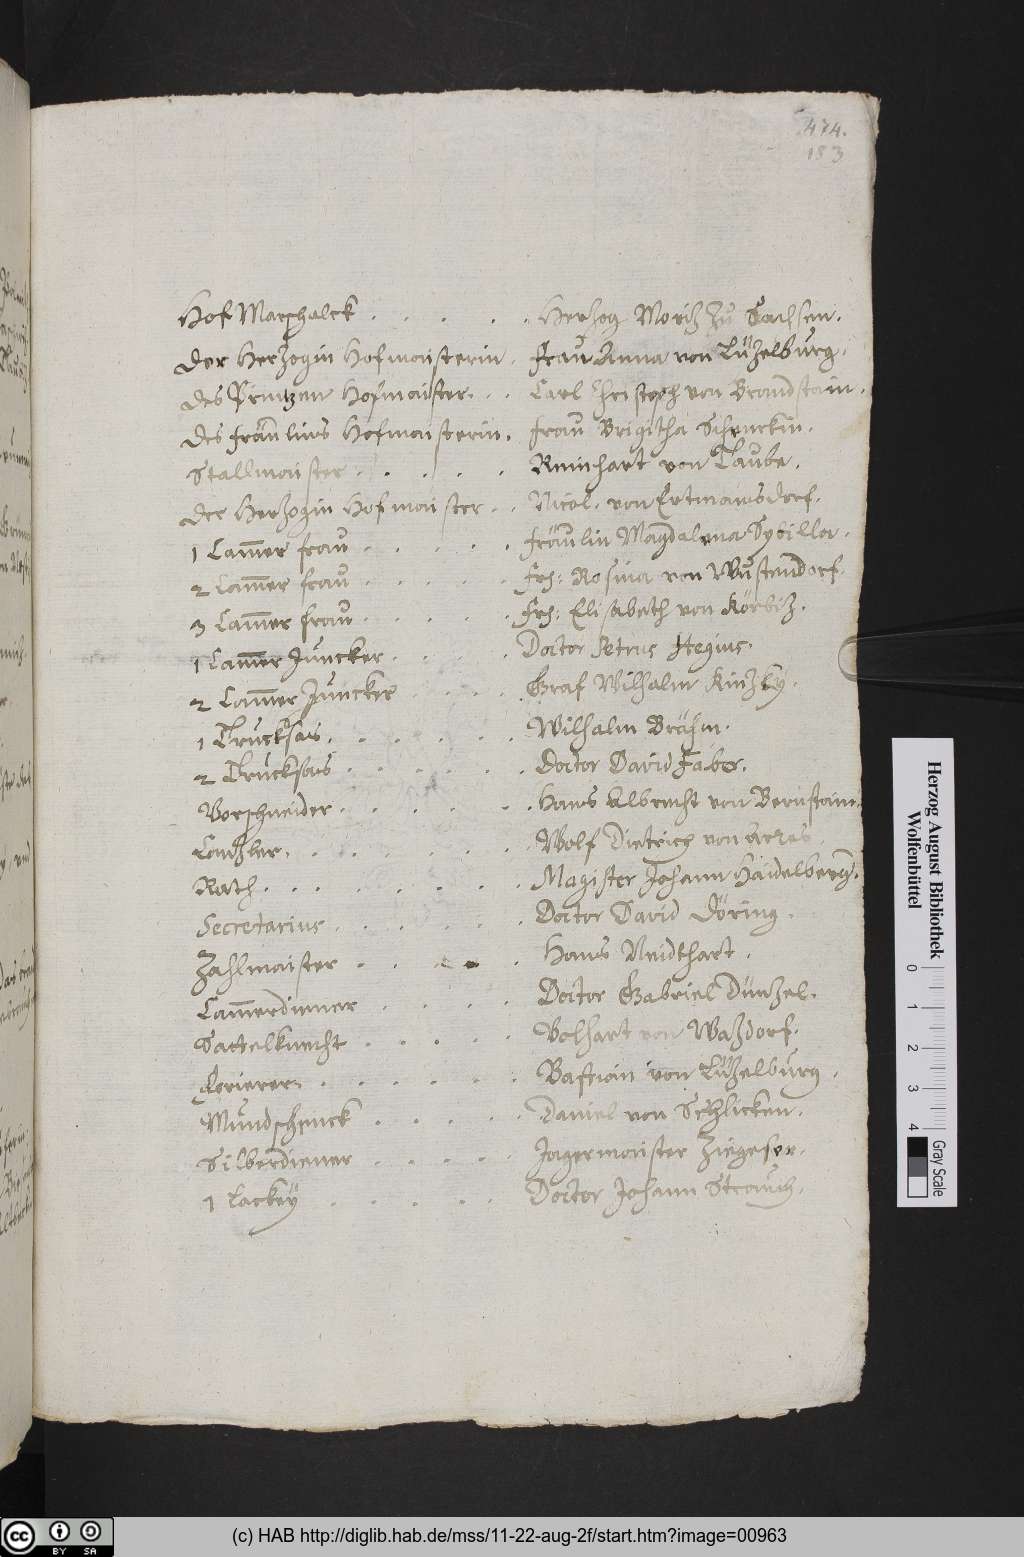 474.
183
Hof Marschalck . . . . . Herzog Moritz zu Sachsen.
Der Herzogin Hofmaisterin. Frau Anna von Lüzelburg.
Des Printzen Hofmaister. . . Carl Christoph von Brandstain.
Des Fräulins Hofmaisterin. Frau Brigitha Schenckin.
Stallmaister . . . . . Reinhart von Taube.
Der Herzogin Hofmaister . . Nicol. von Ertmansdorf.
1 Cam̄er frau . . . . . Fräulin Magdalena Sybilla.
2 Cam̄er frau . . . . . Frh: Rosina von Wustendorf.
3 Cam̄er frau . . . . . Frh: Elisabeth von Körbiz.
1 Cam̄er Juncker . . . . Doctor Petrus Hegius.
2 Cam̄er Juncker . . . . Graf Wilhalm Kinzky.
1 Trucksas. . . . . . Wilhalm Brähm.
2 Trucksas . . . . . Doctor David Faber.
Vorschneider . . . . . . Hans Albrecht von Bernstain.
Canzler. . . . . . . . Wolf Dietrich von
Rath. . . . . . . . Magister Johann Haidelberg.
Secretarius . . . . . . Doctor David Döring.
Zahlmaister . . . . . Hans Neidthart.
Cam̄erdiener . . . . Doctor Gabriel Dünzel.
Sattelknecht . . . . . Volhart von Wazdorf.
. . . . . . Bastian von Lüzelburg.
Mundschenck . . . . . Daniel von Schlicken.
Silberdiener . . . . Jagermaister Ziegeser.
1 Lackey . . . . Doctor Johann Strauch.
Herzog August Bibliothek
Wolfenbüttel
0 1 2 3 4
Gray Scale
cc BY SA
(c) HAB http://diglib.hab.de/mss/11-22-aug-2f/start.htm?image=00963